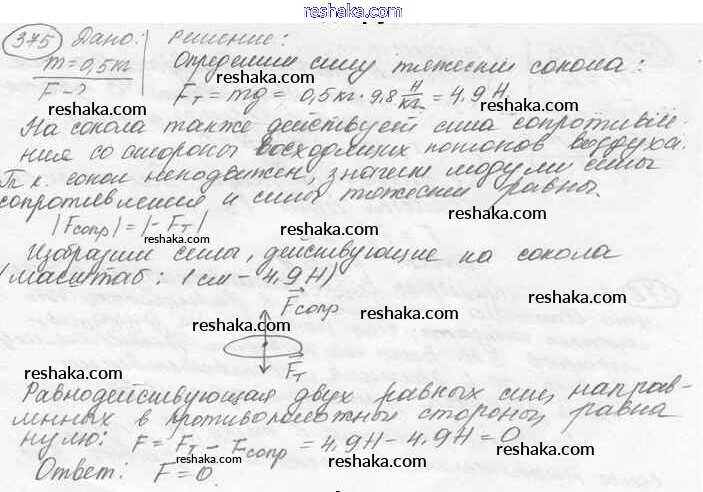 reshaka.com
375 Дано: Решение:
m=0,5кг Определим силу тяжести сокола:
F-? Fт = mg = 0,5кг·9,8 Н/кг = 4,9Н.
reshaka.com reshaka.com
На сокола также действует сила сопротивле-
ния со стороны восходящих потоков воздуха.
reshaka.com reshaka.com
Т.к. сокол неподвижен, значит модули силы
сопротивления и силы тяжести равны.
reshaka.com
|Fсопр| = |-Fт|
reshaka.com reshaka.com
Изобразим силы, действующие на сокола
(масштаб: 1см - 4,9Н)
reshaka.com
Fсопр
reshaka.com reshaka.com
Fт
reshaka.com reshaka.com
Равнодействующая двух равных сил, направ-
ленных в противоположные стороны, равна
reshaka.com reshaka.com
нулю: F = Fт - Fсопр = 4,9Н - 4,9Н = 0
reshaka.com
Ответ: F=0.
reshaka.com reshaka.com